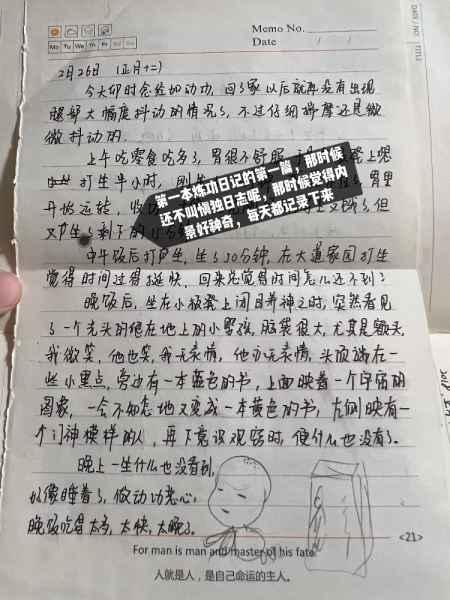 Memo No.
Mo Tu We Th Fr Sa Su
Date / /
DATE / NO.
TITLE
2月26日 (正月十二)
今天卯时念经加动功，回了家以后就再没有出现
腿部大幅度抖动的情况了，不过仔细揣摩还是微
微抖动的.
上午吃零食吃多了，胃很不舒服
打坐半小时，刚
胃里
开始运转，
但
又
剩下的
第一本炼功日记的第一篇，那时候
还不叫慎独日志呢，那时候觉得内
景好神奇，每天都记录下来
中午饭后打坐，坐了30分钟，在大道家园打坐
觉得时间过得挺快，回来总觉得时间怎么还不到？
晚饭后，坐在小板凳上闭目养神之时，突然看见
了一个光头的
在地上的小男孩，脑袋很大，尤其是额头，
我微笑，他也笑，我无表情，他亦无表情，头顶端有一
些小黑点，旁边有一本蓝色的书，上面映着一个宇宙的
图象，一会不知怎地又变成一本黄色的书，左侧映有一
个门神模样的人，再下意识观窍时，便什么也没有了.
晚上一坐什么也没看到，
好像睡着了，做动功恶心，
晚饭吃得太多，太快，太晚了.
For man is man and master of his fate.
<21>
人就是人，是自己命运的主人。